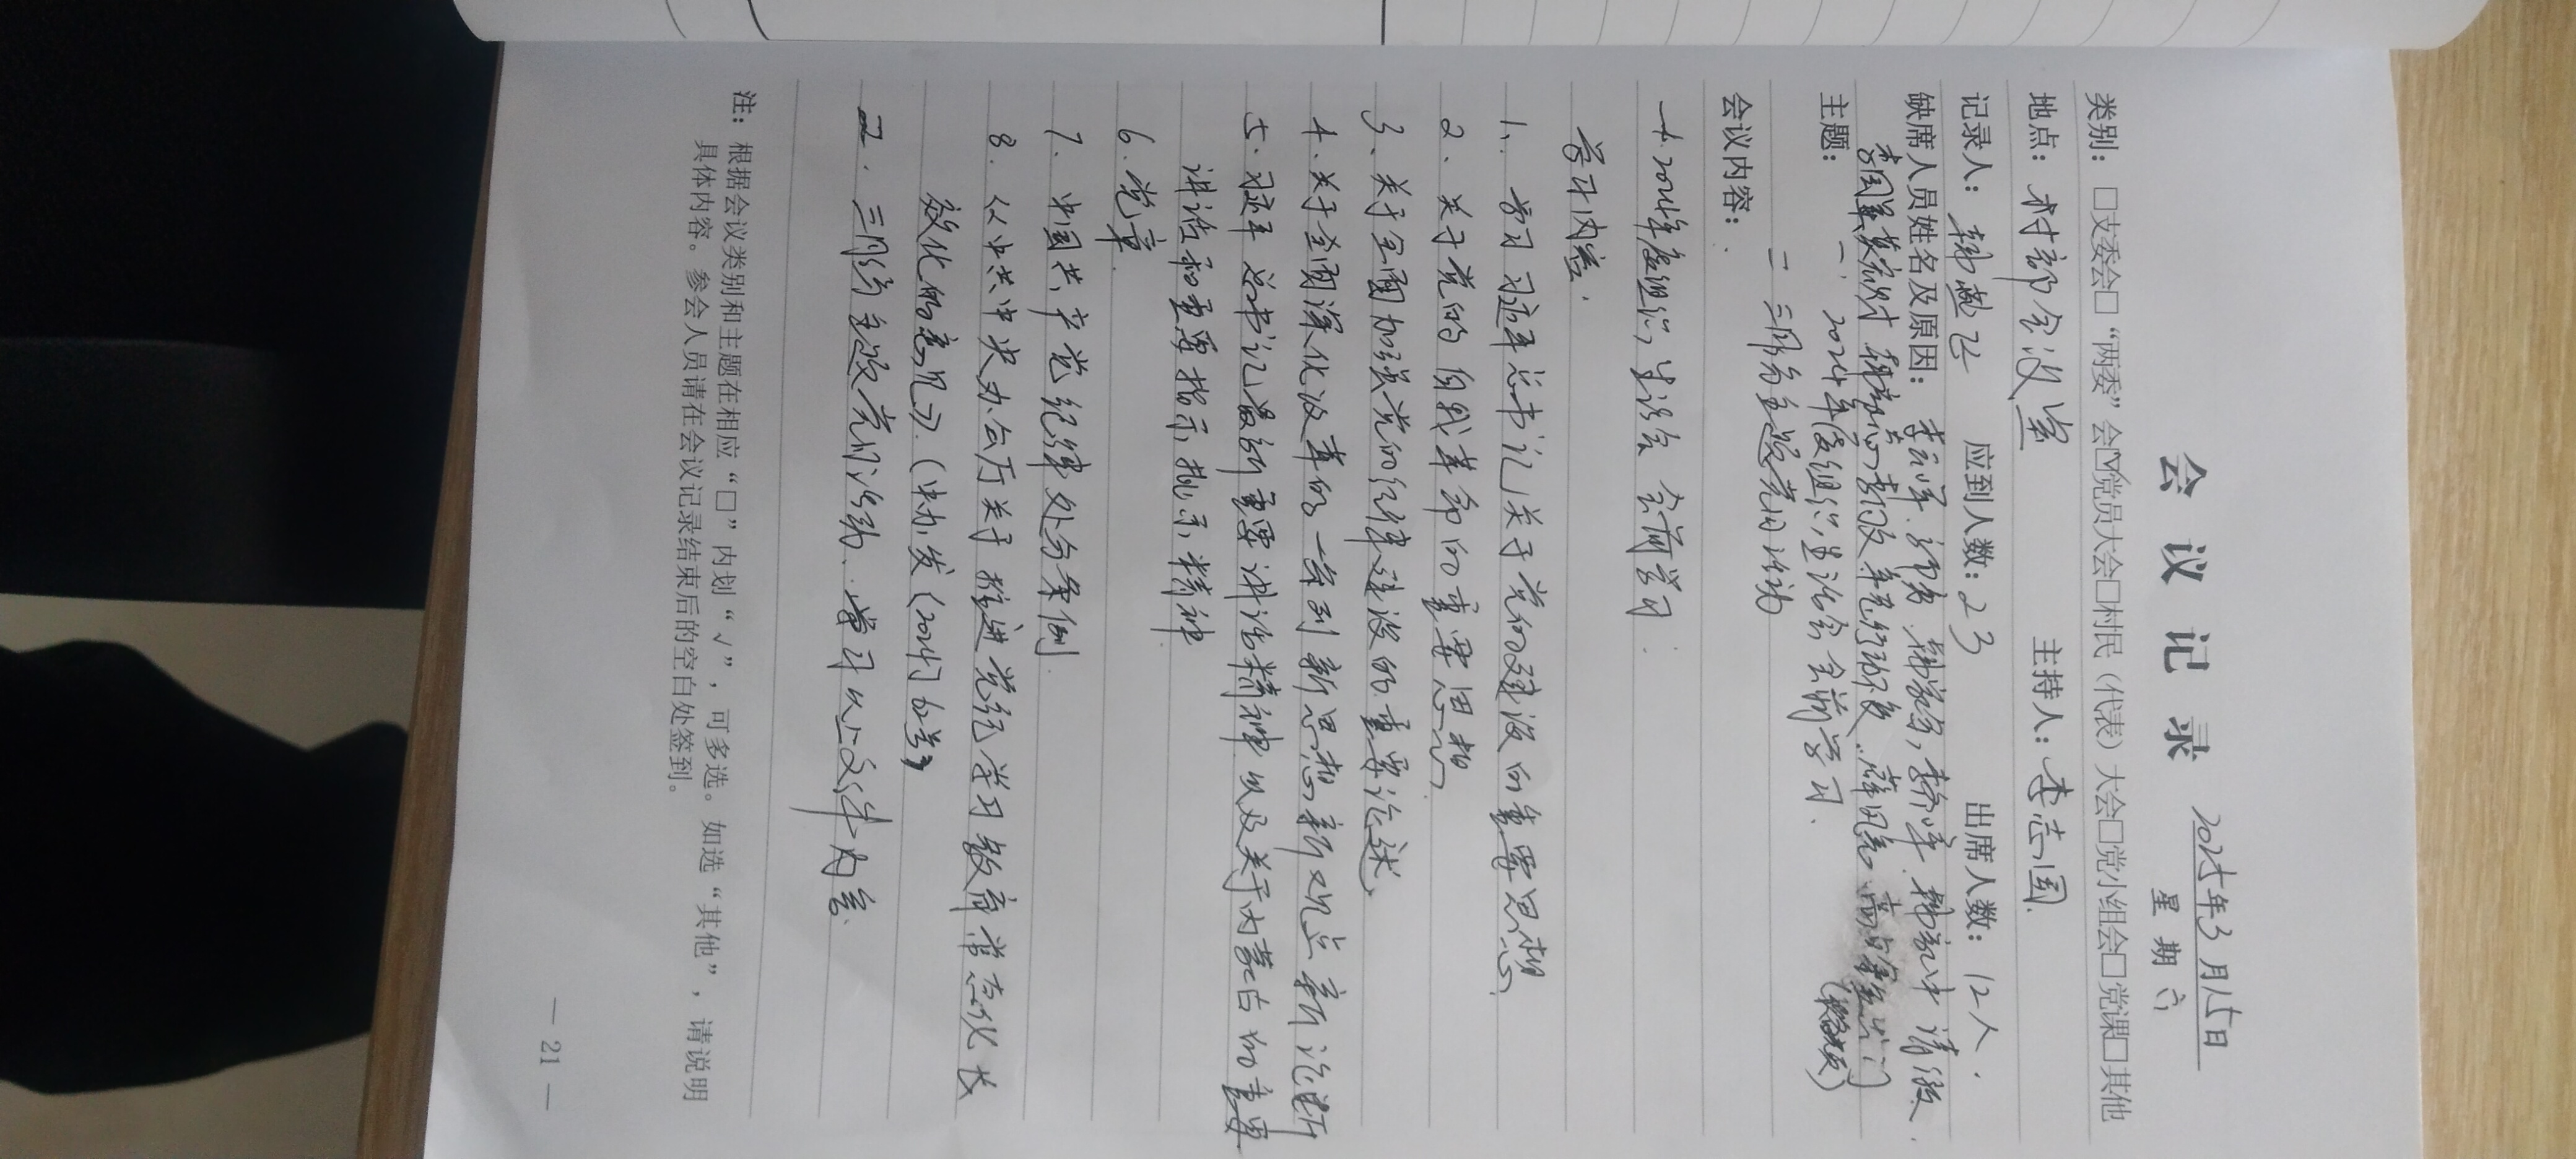 会议记录
2025年3月15日
星期六
类别：□支委会□“两委”会☑党员大会□村民（代表）大会□党小组会□党课□其他
地点：村部会议室 主持人：李志国
记录人：韩 飞 应到人数：23 出席人数：12人.
缺席人员姓名及原因： 请假.
主题：一、2024年度组织生活会会前学习.
二 三月份主题党日活动
会议内容：
一、2024年度组织生活会 会前学习：
学习内容.
1、学习习近平总书记关于党的建设的重要思想
2、关于党的自我革命的重要思想
3、关于全面加强党的纪律建设的重要论述、
4、关于全面深化改革的一系列新思想新观点新论断
5、习近平总书记最新重要讲话精神以及关于内蒙古的重要
讲话和重要指示批示精神
6、党章
7、中国共产党纪律处分条例
8、《中共中央办公厅关于推进党纪学习教育常态化长
效化的意见》.（中办发〔2024〕 号）
二、三月份主题党日活动、学习以上文件内容.
注：根据会议类别和主题在相应“□”内划“√”，可多选。如选“其他”，请说明
具体内容。参会人员请在会议记录结束后的空白处签到。
— 21 —